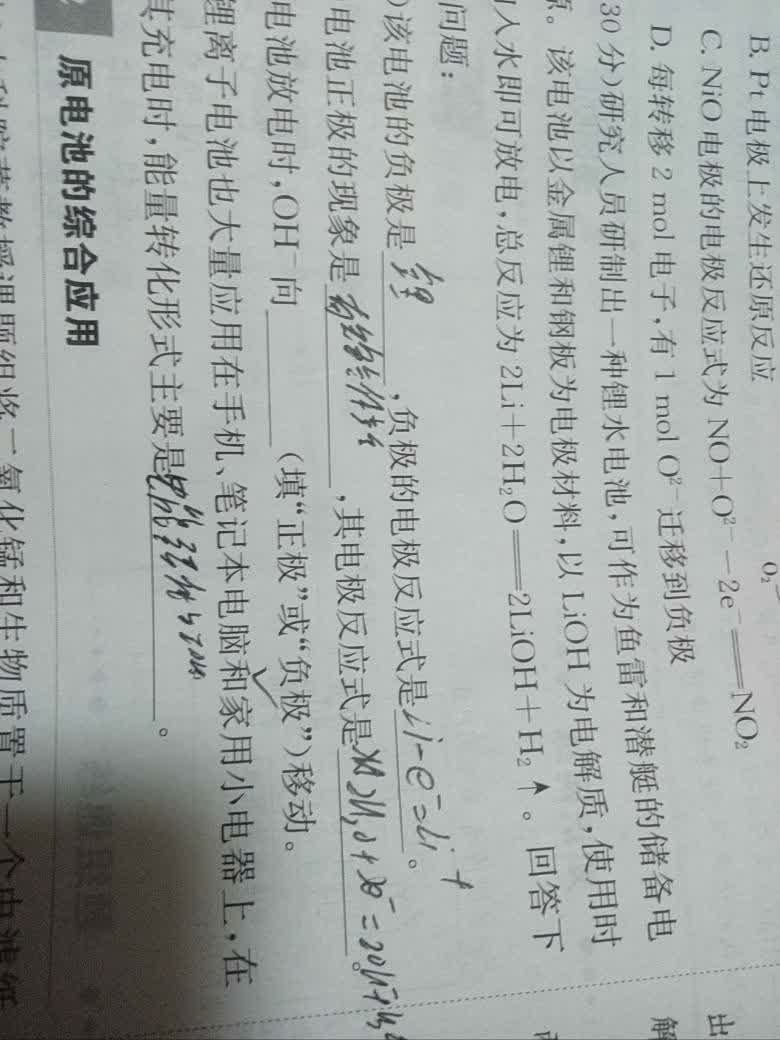 O₂
B. Pt 电极上发生还原反应
C. NiO 电极的电极反应式为 NO+O²⁻-2e⁻══NO₂
D. 每转移 2 mol 电子,有 1 mol O²⁻迁移到负极
30 分)研究人员研制出一种锂水电池,可作为鱼雷和潜艇的储备电
。该电池以金属锂和钢板为电极材料,以 LiOH 为电解质,使用时
入水即可放电,总反应为 2Li+2H₂O══2LiOH+H₂↑。回答下
问题:
)该电池的负极是 锂 ,负极的电极反应式是 Li-e⁻=Li⁺ 。
电池正极的现象是 ,其电极反应式是 2H₂O+2e⁻=2OH⁻+H₂ 。
电池放电时,OH⁻向 (填“正极”或“负极”)移动。
锂离子电池也大量应用在手机、笔记本电脑和家用小电器上,在
其充电时,能量转化形式主要是 。
原电池的综合应用
教授课题组将二氧化锰和生物质置于一个由滤纸
出
解